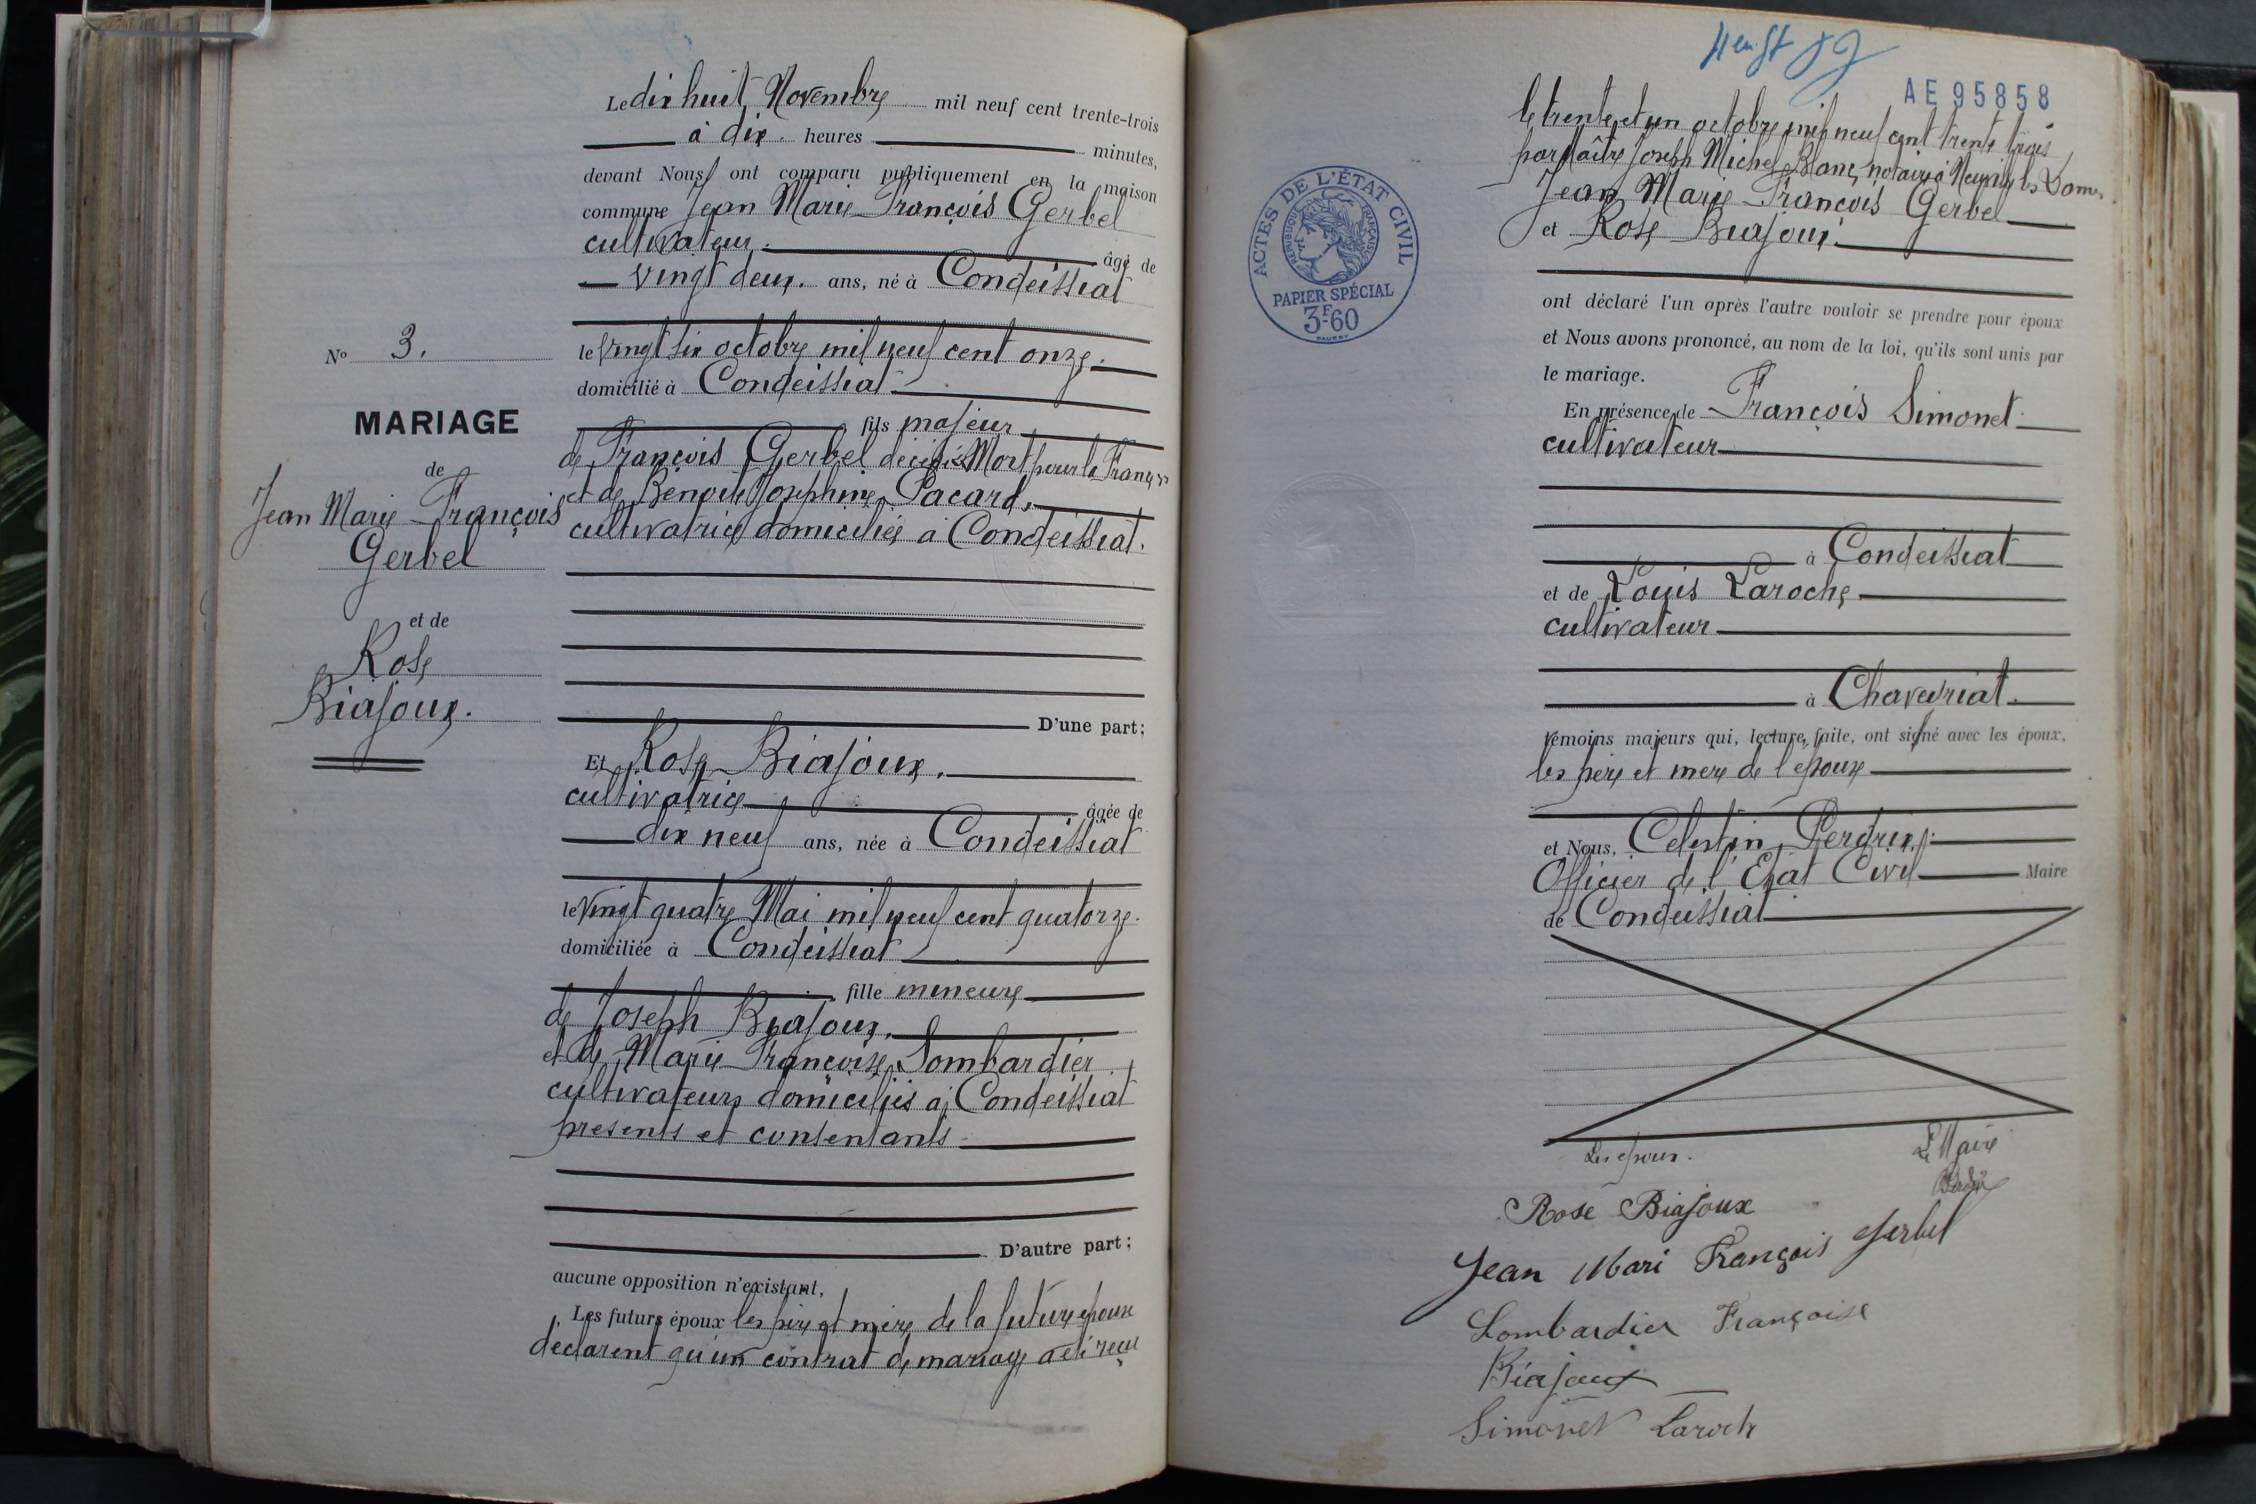 Le dix huit Novembre mil neuf cent trente-trois
à dix. heures minutes,
devant Nous ont comparu publiquement en la maison
commune Jean Marie François Gerbel
cultivateur. âgé de
vingt deux. ans, né à Condeissiat
le vingt six octobre mil neuf cent onze.
domicilié à Condeissiat
fils majeur
de François Gerbel décédé Mort pour la France
et de Benoite Josephine Pacard,
cultivatrice domiciliés à Condeissiat.
D'une part;
No 3.
MARIAGE
de
Jean Marie François
Gerbel
et de
Rose
Biajoux.
Et Rose Biajoux.
cultivatrice âgée de
dix neuf ans, née à Condeissiat
le vingt quatre Mai mil neuf cent quatorze.
domiciliée à Condeissiat
fille mineure
de Joseph Biajoux,
et de Marie Françoise Lombardier
cultivateurs domiciliés à Condeissiat
présents et consentants
D'autre part;
aucune opposition n'existant,
Les futurs époux les père et mère de la future épouse
déclarent qu'un contrat de mariage a été reçu
AE 95858
le trente et un octobre mil neuf cent trente trois
par Maître Joseph Michel Blanc, notaire à Neuville les Dames
Jean Marie François Gerbel
et Rose Biajoux.
ACTES DE L'ÉTAT CIVIL
RÉPUBLIQUE FRANÇAISE
PAPIER SPÉCIAL
3F60
ont déclaré l'un après l'autre vouloir se prendre pour époux
et Nous avons prononcé, au nom de la loi, qu'ils sont unis par
le mariage.
En présence de François Simonet
cultivateur
à Condeissiat
et de Louis Laroche
cultivateur
à Chaveyriat.
témoins majeurs qui, lecture faite, ont signé avec les époux,
les père et mère de l'épouse
et Nous, Celestin Perdrix,
Officier de l'Etat Civil Maire
de Condeissiat
Les époux. Le Maire
Rose Biajoux
Jean Mari François Gerbel
Lombardier Françoise
Biajoux
Simonet Laroch